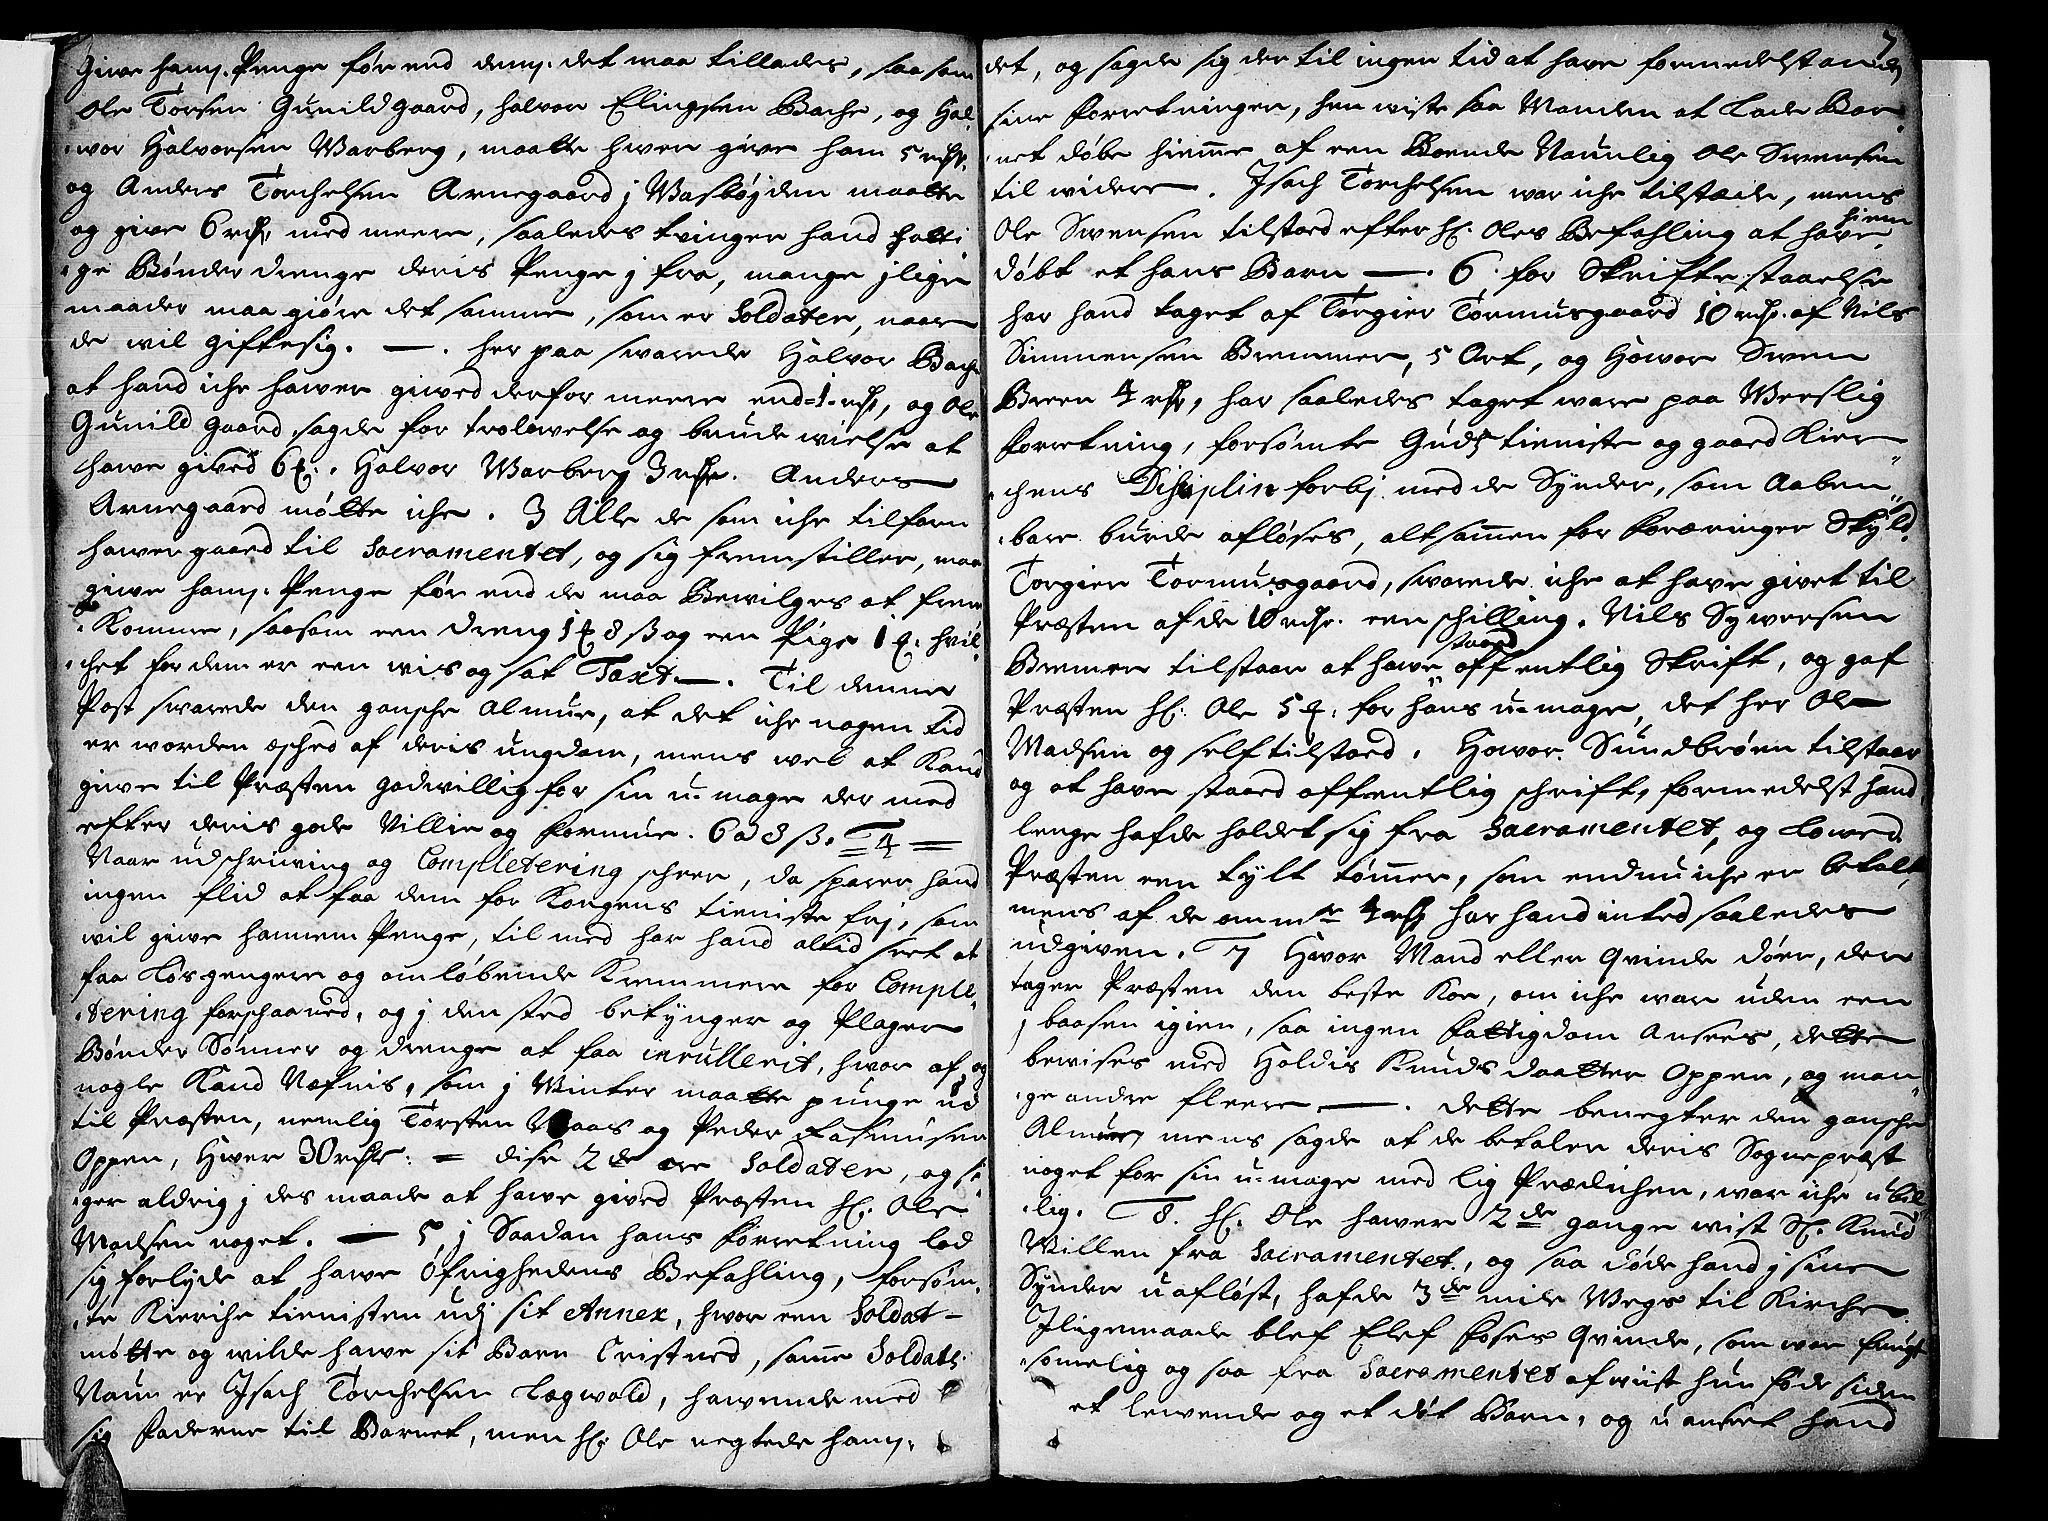 Giwe ham. Penge før end dem. det maa tillades, saa som
Ole Torsen Gunildgaard, halvor Elingsen Bache, og Hal,
wor Halvorsen Warberg, maatte hwer give ham 5 rdr.
og Anders Torchelsen Arnegaard j Wasbøjden maatte
og give 6 rdr, med meere, saaledes tvinger hand fatti,
ge Bønder drenge deris Penge j fra, mange jlige
maader maa giøre det samme, som er Soldater, naar
de wil gifte sig. —. her paa swarede Halvor Bache
at hand iche hawer giwed derfor meere end 1 rdr, og Ole
Gunild gaard sagde for trolowelse og brude wielse at
hawe gived 6 ß. Halvor Warberg 3 rdr. Anders
Arnegaard møtte iche. 3 Alle de som iche tilforn
hawer gaaed til Sacramentet, og sig fremstiller, maa
give ham. Penge før end de maa Bewilges at frem
komme, saasom een dreng 1 ȹ 8 ß og een Pige 1 ȹ. hvil,
chet for dem er een wis og sat Taxt —. Til denne
Post swarede den gansche Almue, at det iche nogen tid
er worden æsched af deris ungdom, mens wel at kand
give til Præsten godwillig for sin u-mage der med
efter deris gode Villie og formue. 6 a 8 ß. 4 —
Naar udschriwing og Completering scheer, da sparer hand
ingen flid at faa dem for Kongens tieniste frj, som
wil giwe hannem Penge, til med har hand altid seet at
faa Løsgengere og omløbende Kremmere for Comple,
tering forschaaned, og j den sted betynger og Plager
Bønder Sønner og drenge at faa inrullerit, hwor af og
nogle Kand Næfnis, som j Winter maatte punge ud
til Præsten, nemlig Torsten Aaas og Peder Rasmusen
Oppen, Hwer 30 rdlr. = disse 2de ere Soldater, og si,
ger aldrig j des maade at hawe gived Præsten Hr. Ole
Madsen noget. — 5 j Saadan hans forretning lod
sig forlyde at hawe Øfrighedens Befahling, forsøm
te Kierche tienisten udj sit Annex, hwor een Soldat
møtte og wilde hawe sit Barn Cristned, samme Soldats
Naun er Isach Torchelsen Lægwold, hawende med
sig faderne til Barnet, men Hr. Ole negtede ham.
7
det, og sagde sig der til ingen tid at have formedelst andre
sine forretninger, hen wiste saa Manden at lade Bar,
net døbe hiemme af een Boende Naunlig Ole Swensen
til widere. Isach Torchelsen war iche tilstæde, mens
Ole Swensen tilstoed efter Hr. Oles Befahling at have hiem
døbt et hans Barn —. 6. for Skrifte staaelse
har hand taget af Torgier Tormusgaard 10 rdr. af Nils
Simmensen Bremmer, 5 Ort, og Howor Swen
Breen 4 rdr, har saaledes taget ware paa Werslig
forretning, forsømte Guds tieniste og gaaed Kier
chens Disciplin forbj med de Synder, som Aaben
bare burde afløses, alt sammen for foræringer Skyld.
Torgier Tormusgaard, swarede iche at have givet til
Præsten af de 10 rdr. een schilling. Nils Sywersen
Bremer tilstaar at hawe staaed offentlig Skrift, og gaf
Præsten Hr. Ole 5 ȹ. for hans u-mage, det her Ole
Madsen og self tilstoed. Howor Sundbrøen tilstaar
og at have staaed offentlig schrift, formedelst hand
lenge hafde holdet sig fra Sacramentet, og Lowed
Præsten een tylt tømmer, som endnu iche er betalt,
mens af de ommte 4 rdr har hand inted saaledes
udgiven. 7 Hwor Mand eller Qvinde døer, der
tager Præsten den beste Koe, om iche war uden een
j baasen igien, saa ingen fattigdom Ansees, dette
bewises med Holdis Knuds daatter Oppen, og man,
ge andre fleere. —. dette benegter den gansche
Almue, mens sagde at de betaler deris Sognepræst
noget for sin u-mage med lig Prædichen, war iche ubil
lig. 8. Hr. Ole hawer 2de gange wist Sl. Knud
Willen fra Sacramentet, og saa døde hand j sine
Synder uafløst, hafde 3de mile Wegs til Kirche
Iligemaade blef Elef Foses Qvinde, som war frugt
somelig og saa fra Sacramentet afwiist hun føde siden
et lewende og et døt Barn, og u anseet hand